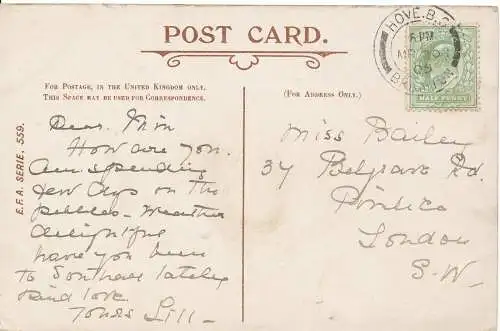 POST CARD.
FOR POSTAGE, IN THE UNITED KINGDOM ONLY.
THIS SPACE MAY BE USED FOR CORRESPONDENCE.
(FOR ADDRESS ONLY.)
E.F.A. SERIE. 559.
HOVE. B.O.
BRIGHTON
HALF PENNY
Dear Min
How are you.
Am spending
few days on the
pebbles - weather
delightful
have you been
to Southall lately
kind love
Yours Lill -
Miss Bailey
37 Belgrave Rd.
Pimlico
London
S.W.